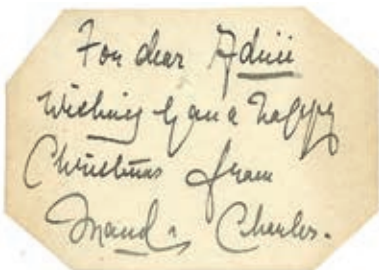 For dear Adrii
Wishing you a happy
Christmas from
Maud & Charles.